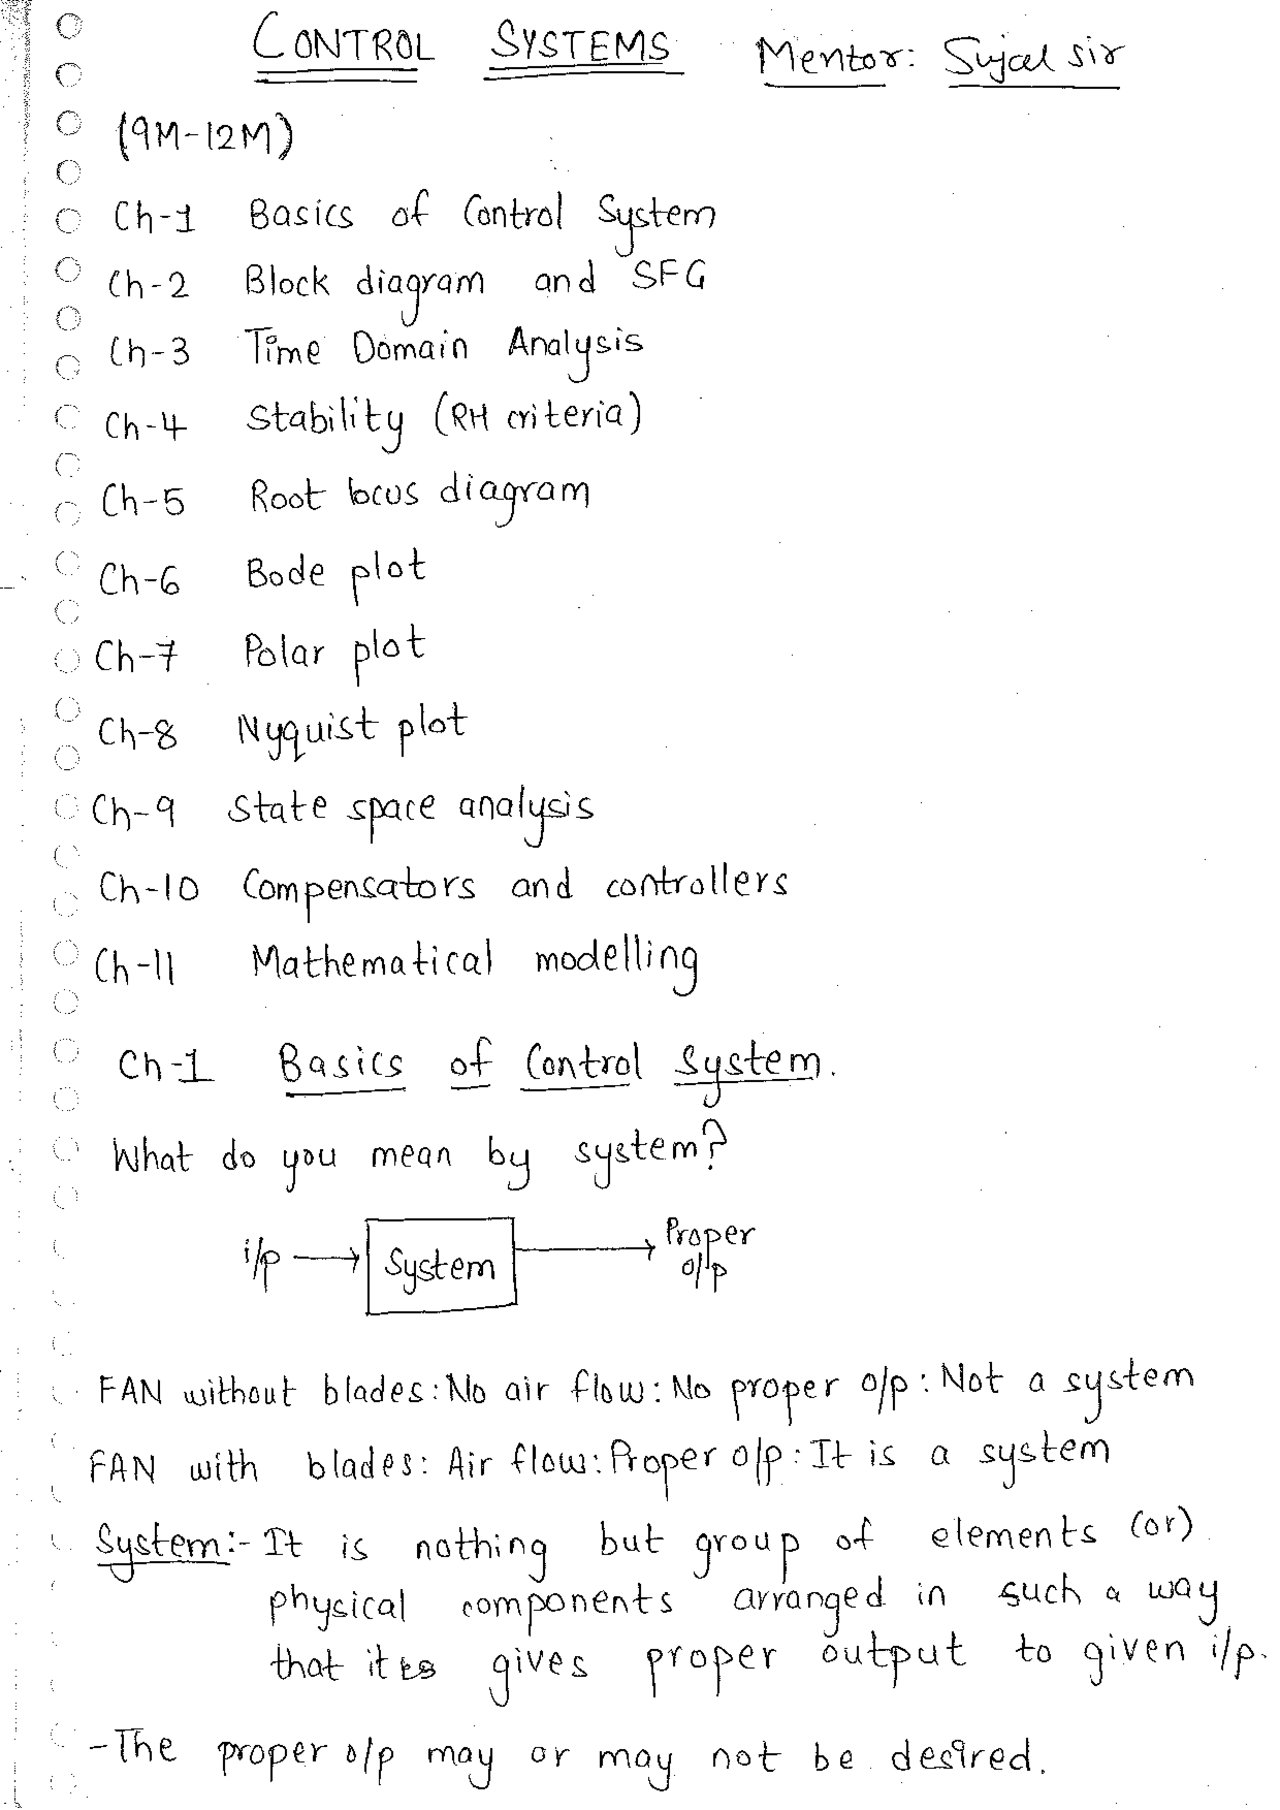 CONTROL SYSTEMS Mentor: Sujal sir
(9M-12M)
Ch-1 Basics of Control System
Ch-2 Block diagram and SFG
Ch-3 Time Domain Analysis
Ch-4 Stability (RH criteria)
Ch-5 Root locus diagram
Ch-6 Bode plot
Ch-7 Polar plot
Ch-8 Nyquist plot
Ch-9 State space analysis
Ch-10 Compensators and controllers
Ch-11 Mathematical modelling
Ch-1 Basics of Control System.
What do you mean by system?
i/p System Proper
o/p
FAN without blades: No air flow: No proper o/p: Not a system
FAN with blades: Air flow: Proper o/p: It is a system
System:- It is nothing but group of elements (or)
physical components arranged in such a way
that it gives proper output to given i/p.
- The proper o/p may or may not be desired.